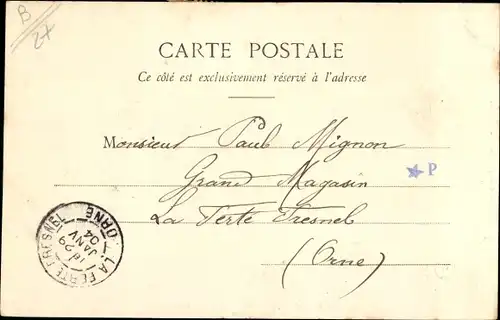 B
2x
CARTE POSTALE
Ce côté est exclusivement réservé à l'adresse
Monsieur Paul Mignon
P
Grand Magasin
La Ferté Fresnel
(Orne)
LA FERTE FRESNEL ORNE
29
JANV
04